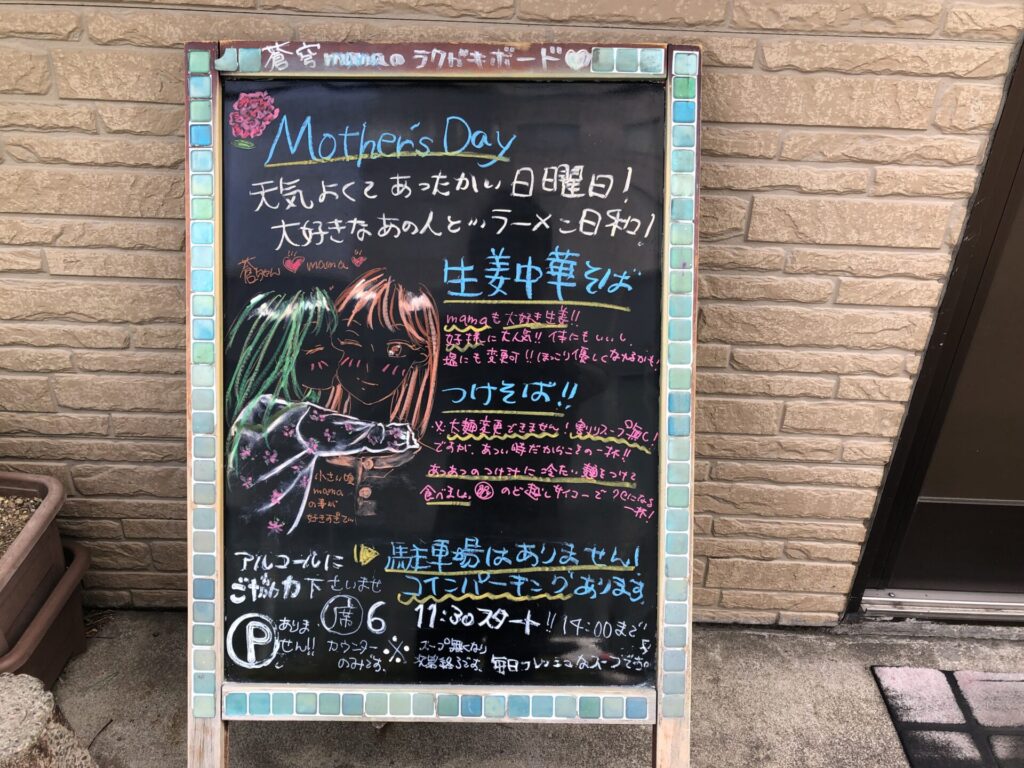 蒼穹mamaのラクガキボード
Mother's Day
天気よくてあったかい日曜日!
大好きなあの人と…ラーメン日和!
蒼ちゃん mama
生姜中華そば
mamaも大好き生姜!!
好評に大人気!! 体にもいいし、
塩にも変更可!! ほっこり優しくなれるかも!
つけそば!!
※太麺変更できません! 割りスープ無し!
ですが、あつい時だからこその一杯!!
あつあつのつけ汁に冷たい麺をつけて
食べまし。 のど越しサイコーで クセになる
一杯!
小さい頃
mama
の事が
好きすぎて…
アルコールに
ご協力下さいませ
駐車場はありません!
コインパーキングあります。
P ありま
せん!!
席 6
カウンター
のみです。
11:30スタート!! 14:00まで
※スープ無くなり
次第終了です。
毎日フレッシュなスープ